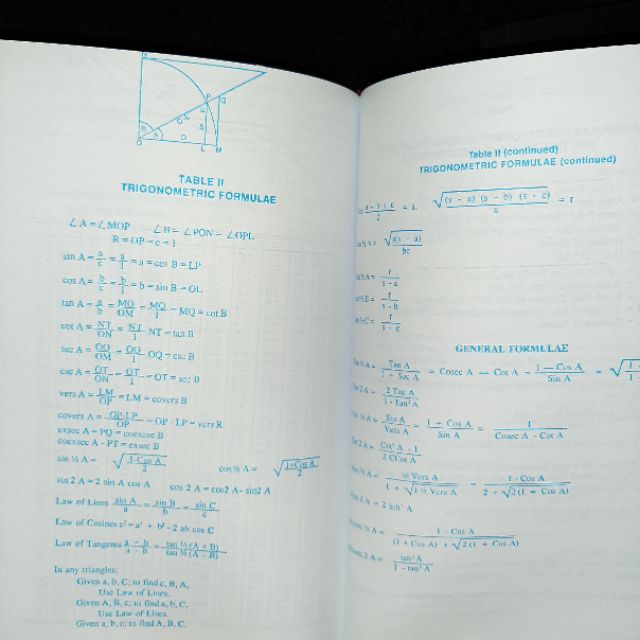 TABLE II
TRIGONOMETRIC FORMULAE
∠A = ∠MOP ∠B = ∠PON = ∠OPL
R = OP = c = 1
sin A = a/c = a/1 = a = cos B = LP
cos A = b/c = b/1 = b = sin B = OL
tan A = a/b = MQ/OM = MQ/1 = MQ = cot B
cot A = NT/ON = NT/1 NT = tan B
sec A = OQ/OM = OQ/1 OQ = csc B
csc A = OT/ON = OT/1 OT = sec B
vers A = LM/OP = LM = covers B
covers A = OP-LP/OP = OP - LP = vers B
exsec A = PQ = coexsec B
coexsec A - PT = exsec B
sin ½ A = √1-Cos A/2 cos ½ A = √1+Cos A/2
sin 2 A = 2 sin A cos A cos 2 A = cos2 A - sin2 A
Law of Lines sin A/a = sin B/b = sin C/c
Law of Cosines c² = a² + b² - 2 ab cos C
Law of Tangens a - b/a - b = tan ½ (A + B)/tan ½ (A - B)
In any triangles:
Given a, b, C; to find c, B, A,
Use Law of Lines.
Given A, B, c; to find a, b, C.
Use Law of Lines.
Given a, b, c; to find A, B, C.
Table II (continued)
TRIGONOMETRIC FORMULAE (continued)
√(s - a) (s - b) (s - c)/s = r
½ A = √s(s - a)/bc
½ A = r/s - a
½ B = r/s - b
½ C = r/s - c
GENERAL FORMULAE
½ A = Tan A/1 + Sec A = Cosec A — Cot A = 1 — Cos A/Sin A = √
2 A = 2 Tan A/1 - Tan² A
½ A = Sin A/Vers A = 1 + Cos A/Sin A = 1/Cosec A - Cot A
2 A = Cot² A - 1/2 Cot A
½ A = ½ Vers A/1 + √1 ½ Vers A = 1 - Cos A/2 + √2(1 + Cos A)
2 A = 2 Sin² A
½ A = 1 - Cos A/(1 + Cos A) + √2 (1 + Cos A)
2 A = tan² A/1 - tan² A